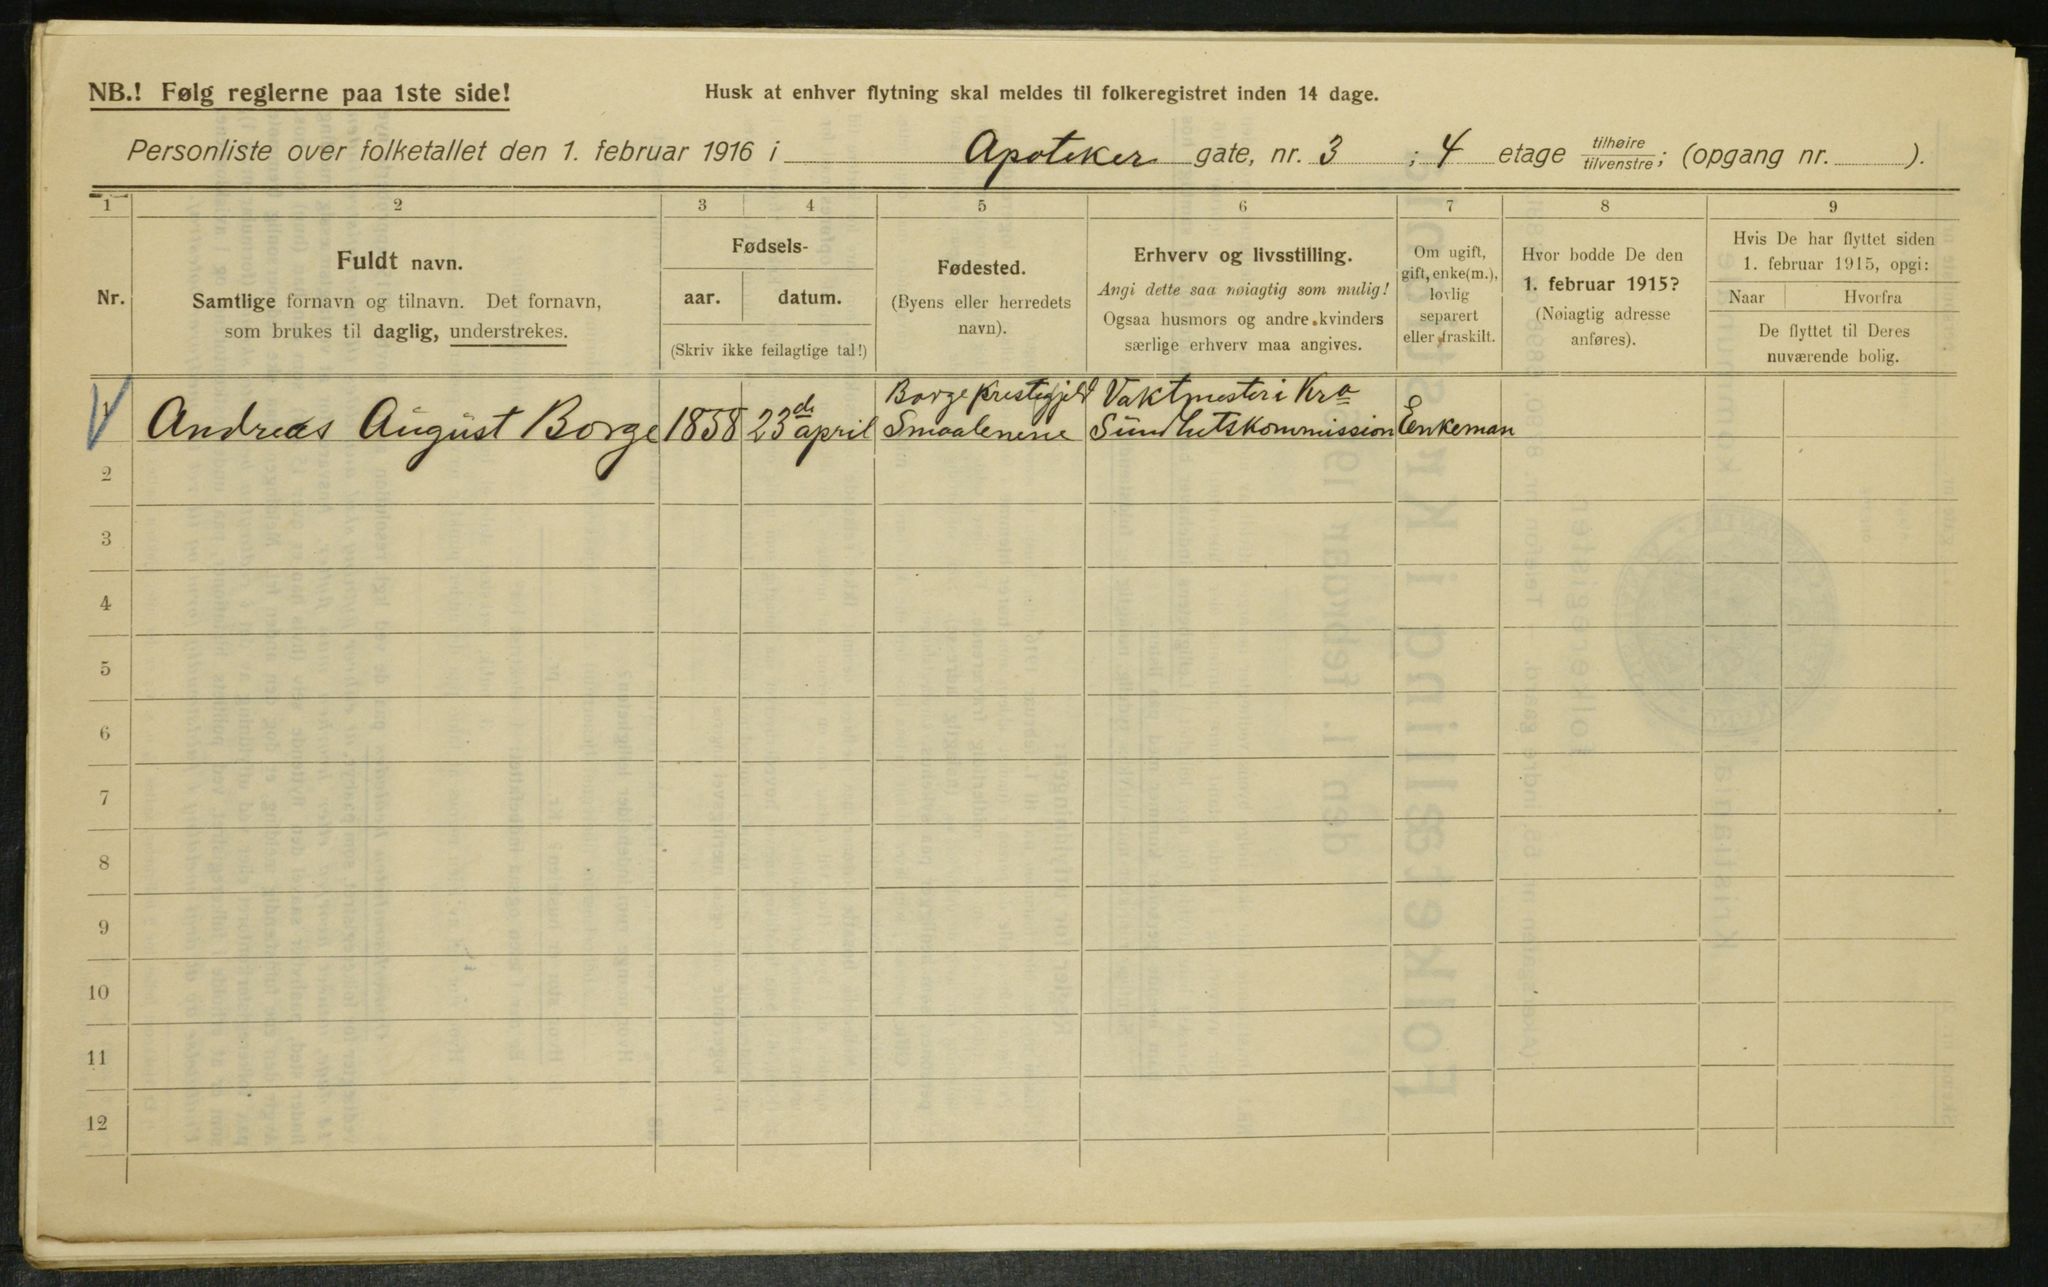 NB.! Følg reglerne paa 1ste side!
Husk at enhver flytning skal meldes til folkeregistret inden 14 dage.
Personliste over folketallet den 1. februar 1916 i Apoteker gate, nr. 3 ; 4 etage tilhøire/tilvenstre; (opgang nr. ).
1 2 3 4 5 6 7 8 9
Nr.
Fuldt navn.
Samtlige fornavn og tilnavn. Det fornavn,
som brukes til daglig, understrekes.
Fødsels-
aar. datum.
(Skriv ikke feilagtige tal!)
Fødested.
(Byens eller herredets
navn).
Erhverv og livsstilling.
Angi dette saa nøiagtig som mulig!
Ogsaa husmors og andre kvinders
særlige erhverv maa angives.
Om ugift,
gift, enke(m.),
lovlig
separert
eller fraskilt.
Hvor bodde De den
1. februar 1915?
(Nøiagtig adresse
anføres).
Hvis De har flyttet siden
1. februar 1915, opgi:
Naar Hvorfra
De flyttet til Deres
nuværende bolig.
1 Andreas August Borge 1858 23de april Borge prestegjeld Smaalenene Vaktmester i Kra Sundhetskommission Enkeman
2
3
4
5
6
7
8
9
10
11
12